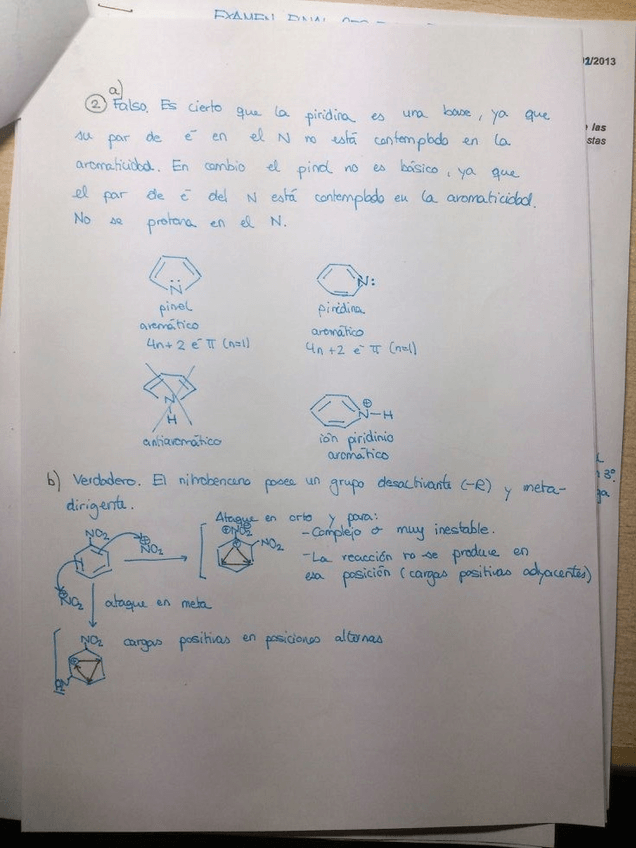 EXAMEN FINAL
/2013
las
stas
a)
② Falso. Es cierto que la piridina es una base, ya que
su par de e⁻ en el N no está contemplado en la
aromaticidad. En cambio el pirrol no es básico, ya que
el par de e⁻ del N está contemplado en la aromaticidad.
No se protona en el N.
N̈
N:
pirrol
piridina
aromático
aromático
4n+2 e⁻ π (n=1)
4n+2 e⁻ π (n=1)
N
H
⊕
N-H
antiaromático
ión piridinio
aromático
b) Verdadero. El nitrobenceno posee un grupo desactivante (-R) y meta-
dirigente.
Ataque en orto y para:
NO₂
⊕NO₂
⊕NO₂
NO₂
- Complejo σ muy inestable.
- La reacción no se produce en
esa posición (cargas positivas adyacentes)
⊕NO₂
ataque en meta
NO₂
cargas positivas en posiciones alternas
3º
ga